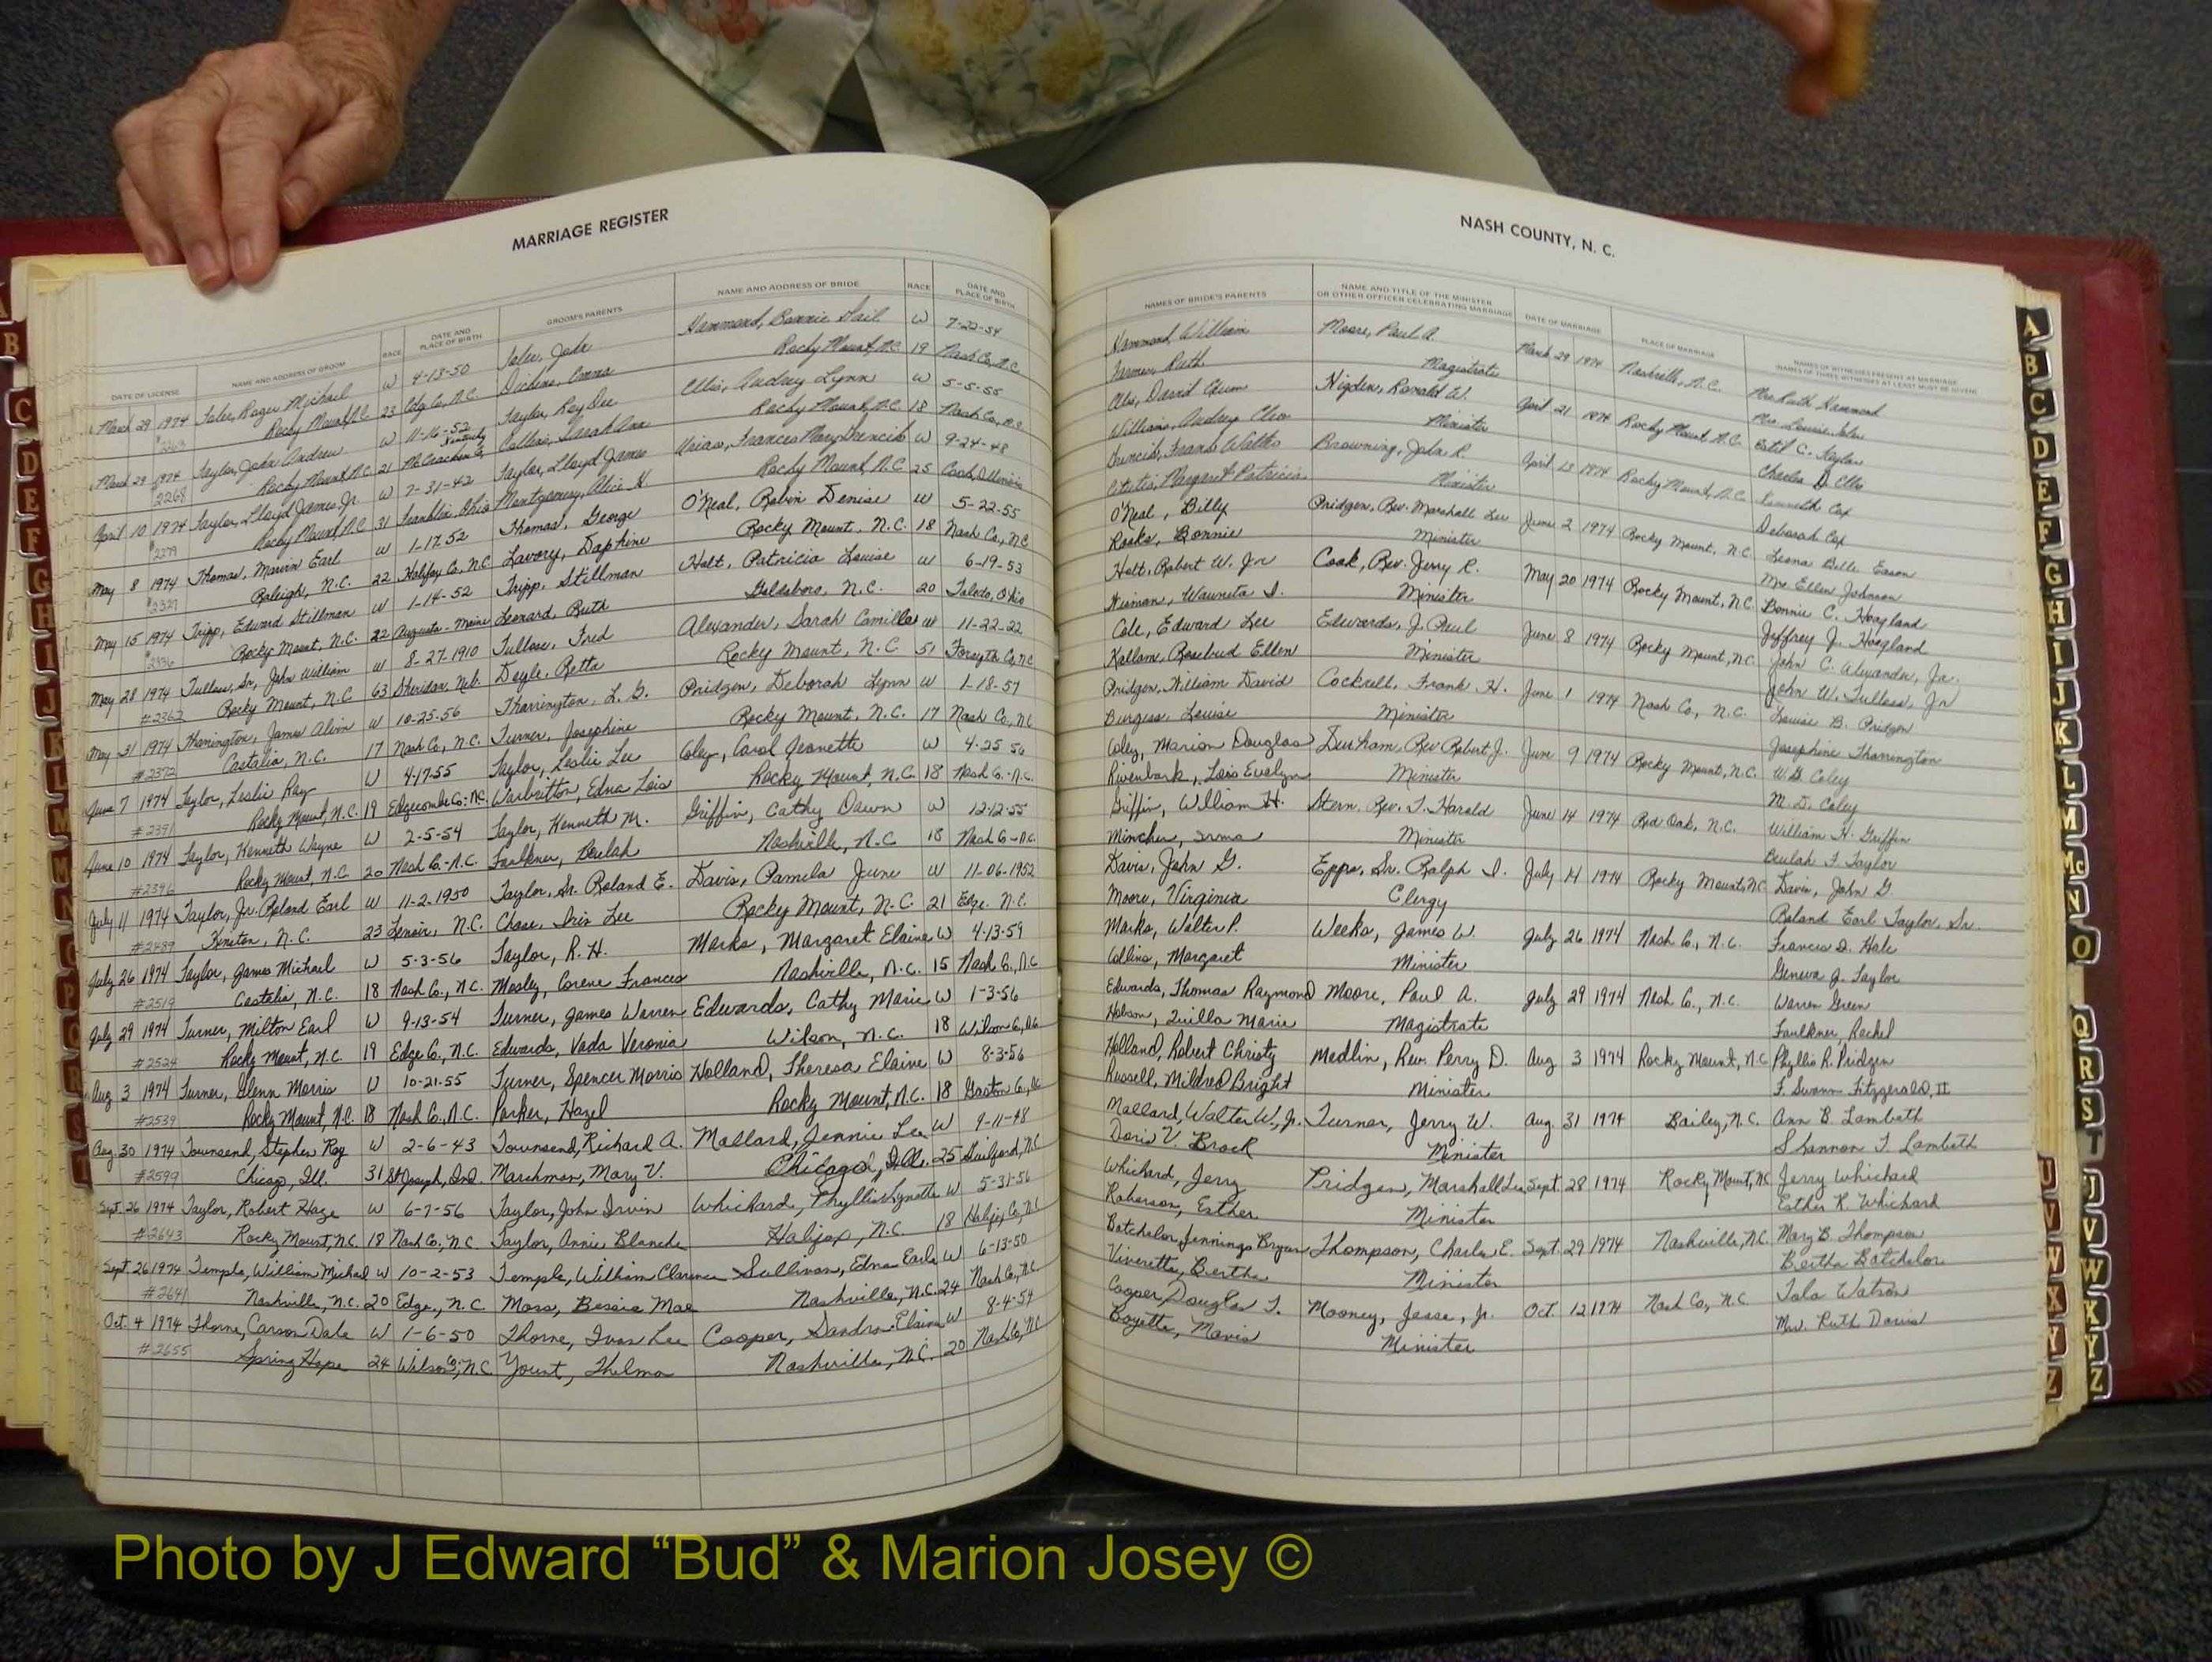 MARRIAGE REGISTER
DATE OF LICENSE NAME AND ADDRESS OF GROOM RACE DATE AND PLACE OF BIRTH GROOM'S PARENTS NAME AND ADDRESS OF BRIDE RACE DATE AND PLACE OF BIRTH
March 29 1974 Roger Michael W 4-13-50 John Hammond, Bonnie Gail W 7-22-54
Rocky Mount, N.C. 23 Edg. Co., N.C. Dickens, Emma Rocky Mount, N.C. 19 Nash Co., N.C.
March 29 1974 Taylor, John Andrew W 11-16-52 Taylor, Roy Dee Ellis, Audrey Lynn W 5-5-55
2268 Rocky Mount, N.C. 21 McCracken Co, Kentucky Collins, Sarah Ann Rocky Mount, N.C. 18 Nash Co., N.C.
April 10 1974 Taylor, Lloyd James, Jr. W 7-31-42 Taylor, Lloyd James Frances Mary W 9-24-48
Rocky Mount, N.C. 31 Franklin, Ohio Montgomery, Alice H. Rocky Mount, N.C. 25 Cook, Illinois
May 8 1974 Thomas, Marvin Earl W 1-17-52 Thomas, George O'Neal, Robin Denise W 5-22-55
#2327 Raleigh, N.C. 22 Halifax Co, N.C. Lavory, Daphine Rocky Mount, N.C. 18 Nash Co., NC
May 15 1974 Tripp, Edward Stillman W 1-14-52 Tripp, Stillman Holt, Patricia Louise W 6-19-53
#2336 Rocky Mount, N.C. 22 Augusta - Maine Leonard, Ruth Goldsboro, N.C. 20 Toledo, Ohio
May 28 1974 Tulloss, Sr, John William W 8-27-1910 Tulloss, Fred Alexander, Sarah Camilla W 11-22-22
#2362 Rocky Mount, N.C. 63 Sheridan, Neb. Doyle, Retta Rocky Mount, N.C 51 Forsyth Co, NC
May 31 1974 Tharrington, James Alvin W 10-25-56 Tharrington, L. G. Pridgen, Deborah Lynn W 1-18-57
#2372 Castalia, N.C. 17 Nash Co., N.C. Turner, Josephine Rocky Mount, N.C. 17 Nash Co., N.C
June 7 1974 Taylor, Leslie Ray W 4-17-55 Taylor, Leslie Lee Coley, Carol Jeanette W 4-25-56
#2391 Rocky Mount, N.C. 19 Edgecombe Co. N.C. Warbritton, Edna Lois Rocky Mount, N.C. 18 Nash Co. N.C.
June 10 1974 Taylor, Kenneth Wayne W 2-5-54 Taylor, Kenneth M. Griffin, Cathy Dawn W 12-12-55
#2396 Rocky Mount, N.C 20 Nash Co. N.C. Faulkner, Beulah Nashville, N.C 18 Nash Co. N.C.
July 11 1974 Taylor, Jr. Roland Earl W 11-2-1950 Taylor, Sr. Roland E. Davis, Pamela June W 11-06-1952
#2489 Kinston, N.C. 23 Lenoir, N.C. Chase, Iris Lee Rocky Mount, N.C. 21 Edge. N.C.
July 26 1974 Taylor, James Michael W 5-3-56 Taylor, R. H. Marks, Margaret Elaine W 4-13-59
#2519 Castalia, N.C. 18 Nash Co., N.C. Mosley, Corene Frances Nashville, N.C. 15 Nash Co., N.C
July 29 1974 Turner, Milton Earl W 9-13-54 Turner, James Warren Edwards, Cathy Marie W 1-3-56
#2524 Rocky Mount, N.C. 19 Edge Co., N.C. Edwards, Vada Veronia Wilson, N.C. 18 Wilson Co., N.C
Aug 3 1974 Turner, Glenn Morris W 10-21-55 Turner, Spencer Morris Holland, Theresa Elaine W 8-3-56
#2539 Rocky Mount N.C. 18 Nash Co., N.C. Parker, Hazel Rocky Mount, N.C. 18 Gaston Co., NC
Aug. 30 1974 Townsend, Stephen Roy W 2-6-43 Townsend, Richard A. Mallard, Jennie Lee W 9-11-48
#2599 Chicago, Ill. 31 St Joseph, Ind. Marshman, Mary V. Chicago, Ill. 25 Guilford, N.C
Sept. 26 1974 Taylor, Robert Haze W 6-7-56 Taylor, John Irvin Whichard, Phyllis Lynette W 5-31-56
#2643 Rocky Mount, N.C. 18 Nash Co., N.C Taylor, Annie Blanche Halifax, N.C. 18 Halifax Co, N.C
Sept 26 1974 Temple, William Michael W 10-2-53 Temple, William Clarence Sullivan, Edna Earle W 6-13-50
#2641 Nashville, N.C. 20 Edge., N.C. Moss, Bessie Mae Nashville, N.C. 24 Nash Co., N.C.
Oct. 4 1974 Thorne, Carson Dale W 1-6-50 Thorne, Ivan Lee Cooper, Sandra Elaine W 8-4-54
#2655 Spring Hope 24 Wilson Co; N.C Yount, Thelma Nashville, N.C. 20 Nash Co, N.C
NASH COUNTY, N. C.
NAMES OF BRIDE'S PARENTS NAME AND TITLE OF THE MINISTER OR OTHER OFFICER CELEBRATING MARRIAGE DATE OF MARRIAGE PLACE OF MARRIAGE NAMES OF WITNESSES PRESENT AT MARRIAGE
Hammond, William Moore, Paul A. March 29 1974 Nashville, N.C. Mrs Ruth Hammond
Farmer, Ruth Magistrate Mrs. Louise
Ellis, David Higdon, Ronald W. April 21 1974 Rocky Mount, N.C. Estil C. Taylor
Williams, Audrey Cleo Minister Charles D. Ellis
Francis Walter Browning, John R. April 13 1974 Rocky Mount, N.C. Kenneth Cox
Margaret Patricia Minister Deborah Cox
O'Neal, Billy Pridgen, Rev. Marshall Lee June 2 1974 Rocky Mount, N.C. Leona Belle Eason
Rooks, Bonnie Minister Mrs. Ellen Johnson
Holt, Robert W. Jr Cook, Rev. Jerry R. May 20 1974 Rocky Mount, N.C. Bonnie C. Hoagland
Wauneta I. Minister Jeffrey J. Hoagland
Cole, Edward Lee Edwards, J. Paul June 8 1974 Rocky Mount, N.C. John C. Alexander, Jr.
Kallam, Rosebud Ellen Minister John W. Tulloss, Jr
Pridgen, William David Cockrell, Frank H. June 1 1974 Nash Co, N.C. Louise B. Pridgen
Burgess, Louise Minister Josephine Tharrington
Coley, Marion Douglas Durham, Rev Robert J. June 9 1974 Rocky Mount, N.C. W.D. Coley
Rivenbark, Lois Evelyn Minister M. D. Coley
Griffin, William H. Stern, Rev. T. Harold June 14 1974 Red Oak, N.C. William H. Griffin
Mincher, Irma Minister Beulah F. Taylor
Davis, John G. Epps, Sr. Ralph I. July 14 1974 Rocky Mount, N.C Davis, John G.
Moore, Virginia Clergy Roland Earl Taylor, Sr.
Marks, Walter P. Weeks, James W. July 26 1974 Nash Co., N.C. Frances D. Hale
Collins, Margaret Minister Geneva J. Taylor
Edwards, Thomas Raymond Moore, Paul A. July 29 1974 Nash Co., N.C. Warren Green
Hobson, Zuilla Marie Magistrate Faulkner, Rachel
Holland, Robert Christy Medlin, Rev. Perry D. Aug 3 1974 Rocky Mount, N.C Phyllis R. Pridgen
Russell, Mildred Bright Minister F. Swann Fitzgerald, II
Mallard, Walter W., Jr. Turner, Jerry W. Aug. 31 1974 Bailey, N.C. Ann B Lambeth
Doris V. Brock Minister Shannon T. Lambeth
Whichard, Jerry Pridgen, Marshall Lee Sept. 28 1974 Rocky Mount, N.C Jerry Whichard
Roberson, Esther Minister Esther R. Whichard
Batchelor, Jennings Bryan Thompson, Charles E. Sept. 29 1974 Nashville, N.C. Mary B. Thompson
Viverette, Bertha Minister Bertha Batchelor
Cooper, Douglas T. Mooney, Jesse, Jr. Oct. 12 1974 Nash Co, N.C Tola Watson
Boyette, Mavis Minister Mrs. Ruth Davis
A
B
C
D
E
F
G
H
I
J
K
L
M
Mc
N
O
Q
R
S
T
U
V
W
X
Y
Z
Photo by J Edward “Bud” & Marion Josey ©